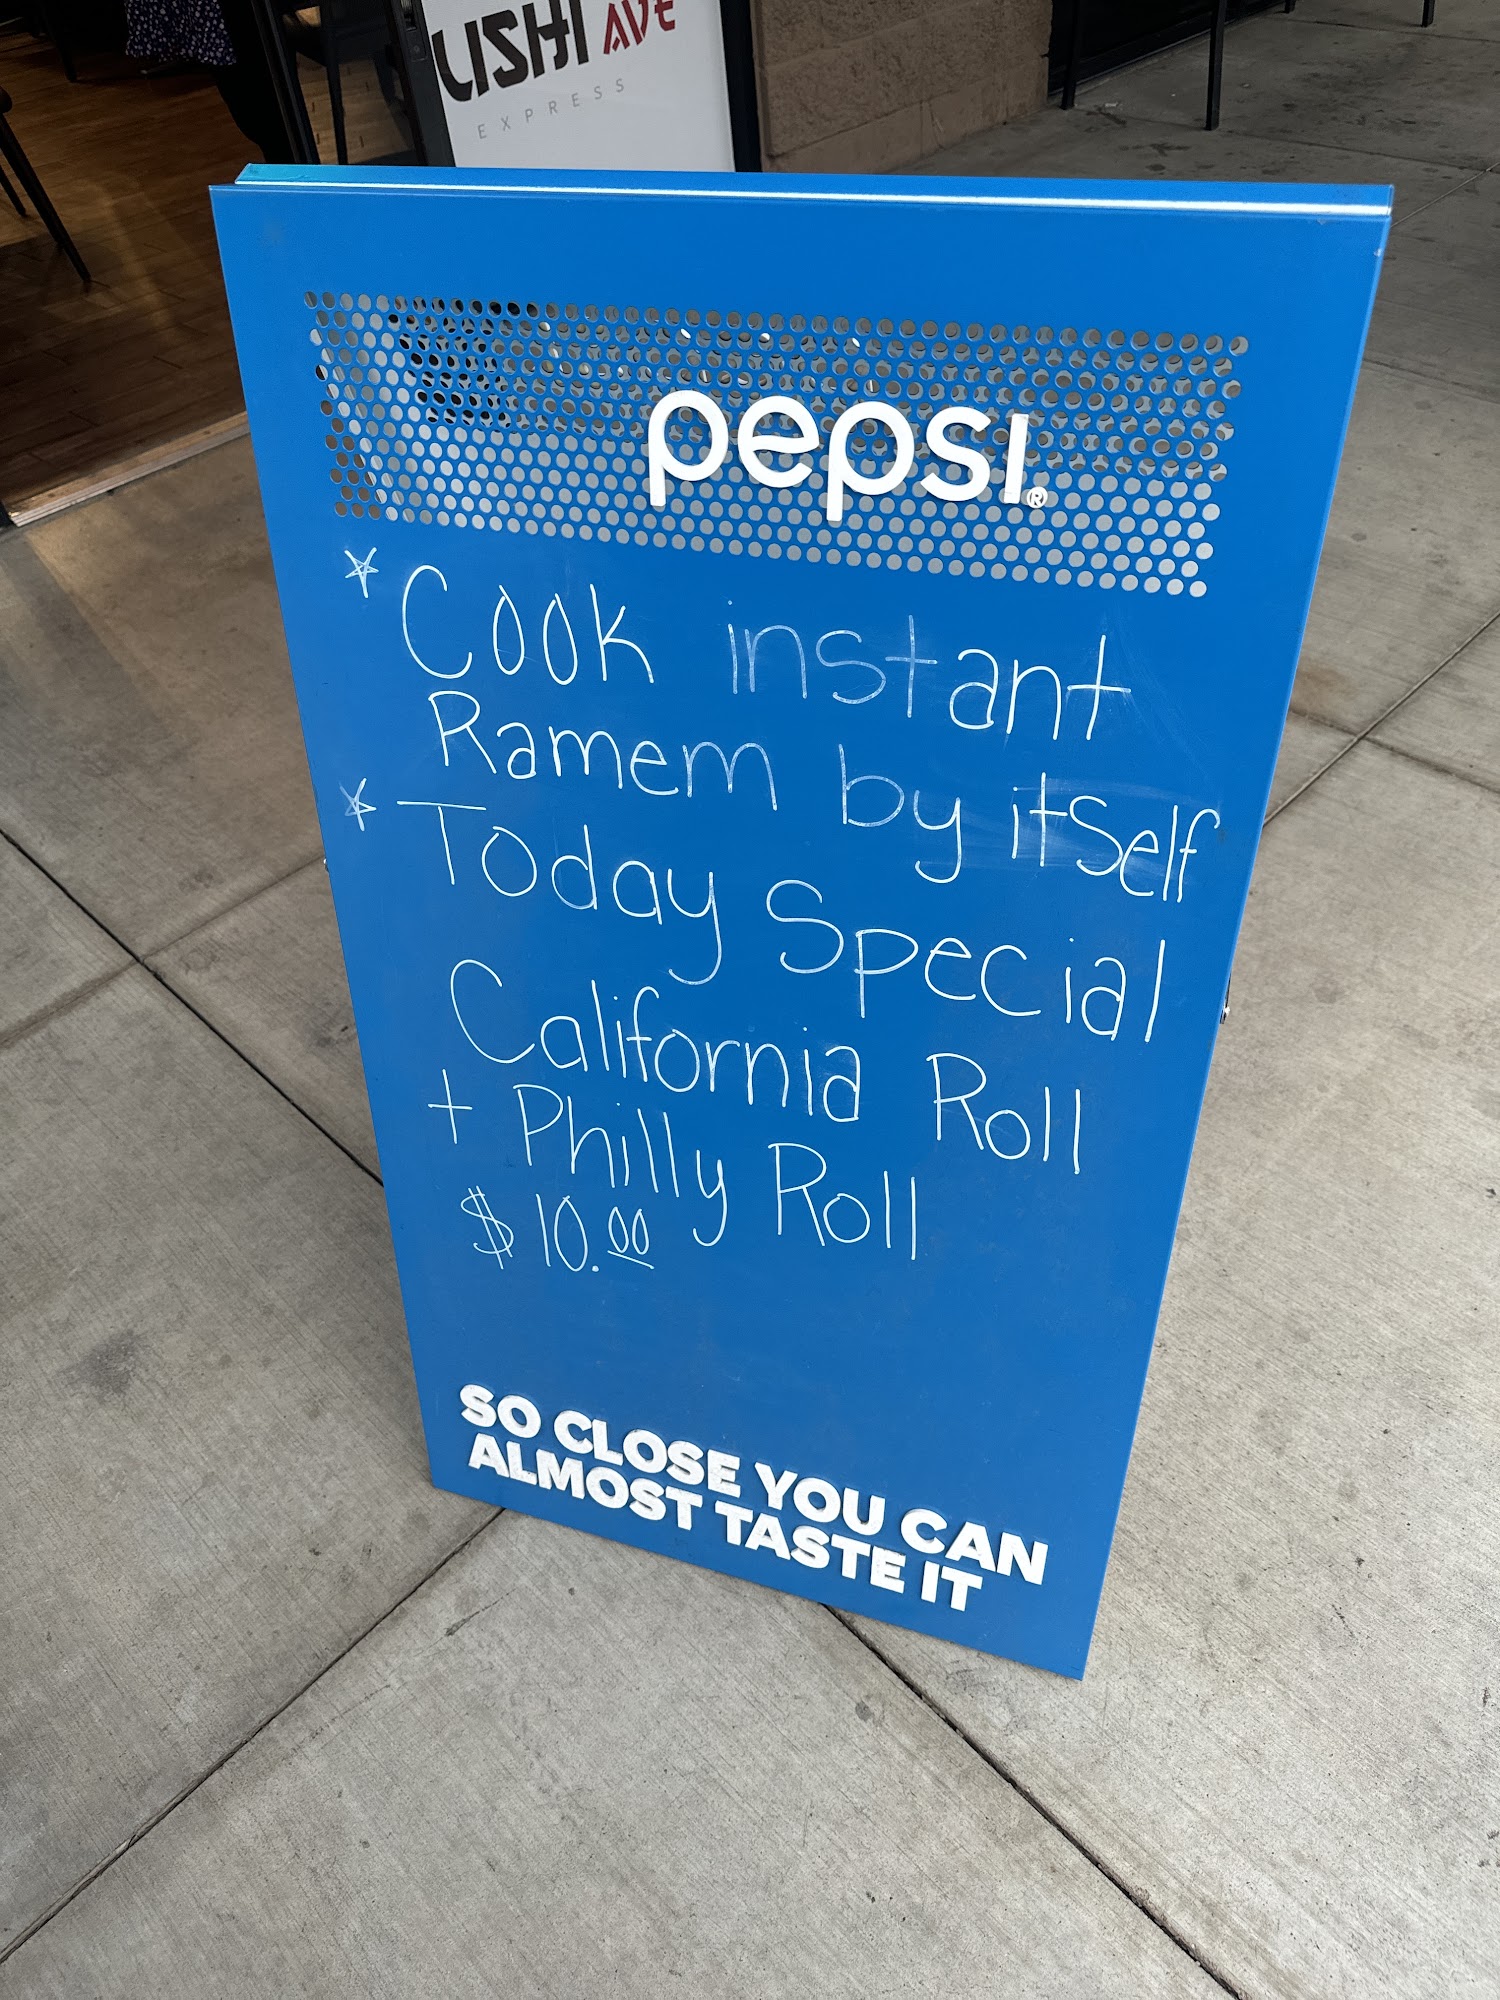 USHI AVE
EXPRESS
pepsi®
* Cook instant
Ramem by itself
* Today Special
California Roll
+ Philly Roll
$10.00
SO CLOSE YOU CAN
ALMOST TASTE IT